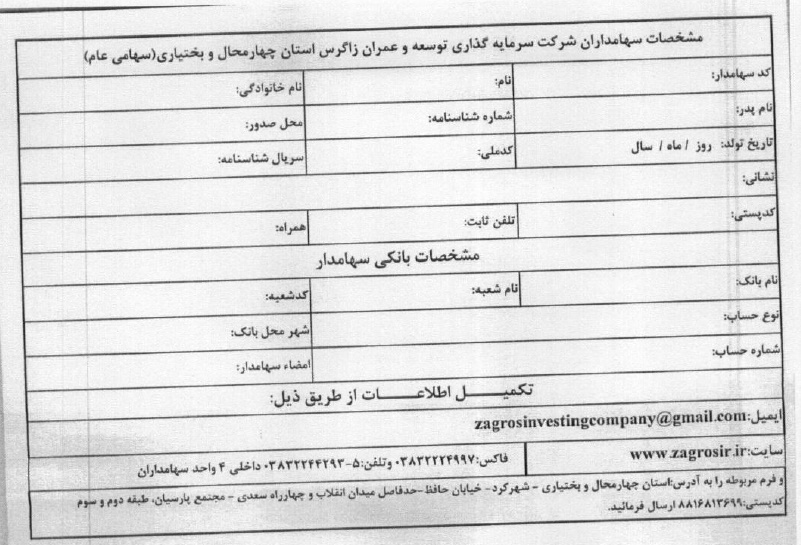 مشخصات سهامداران شرکت سرمایه گذاری توسعه و عمران زاگرس استان چهارمحال و بختیاری(سهامی عام)
کد سهامدار: نام: نام خانوادگی:
نام پدر: شماره شناسنامه: محل صدور:
تاریخ تولد: روز / ماه / سال کدملی: سریال شناسنامه:
نشانی:
کدپستی: تلفن ثابت: همراه:
مشخصات بانکی سهامدار
نام بانک: نام شعبه: کدشعبه:
نوع حساب: شهر محل بانک:
شماره حساب: امضاء سهامدار:
تکمیــــــل اطلاعـــــــات از طریق ذیل:
ایمیل:zagrosinvestingcompany@gmail.com
سایت:www.zagrosir.ir فاکس:۰۳۸۳۲۲۲۴۹۹۷ وتلفن:۵-۰۳۸۳۲۲۴۴۲۹۳ داخلی ۴ واحد سهامداران
و فرم مربوطه را به آدرس:استان چهارمحال و بختیاری – شهرکرد- خیابان حافظ-حدفاصل میدان انقلاب و چهارراه سعدی – مجتمع پارسیان، طبقه دوم و سوم
کدپستی:۸۸۱۶۸۱۳۶۹۹ ارسال فرمائید.